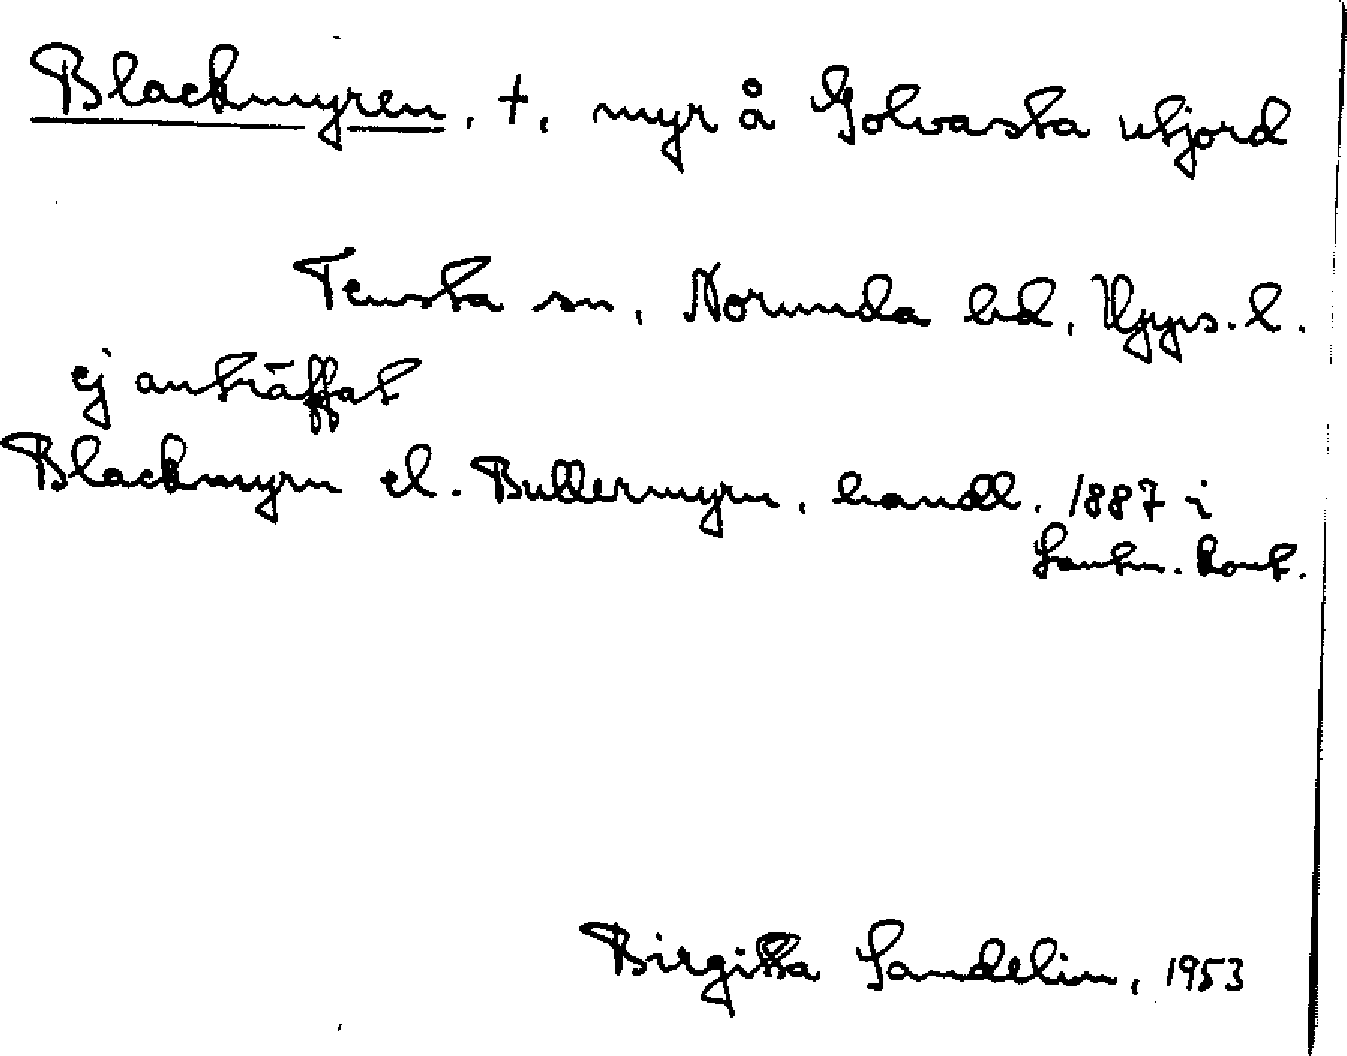 Blackmyren, †, myr å Golvasta utjord
Tensta sn, Norunda hd, Upps. l.
ej anträffat
Blackmyrn el. Bullermyrn, handl. 1887 i
Lantm. kont.
Birgitta Sandelin, 1953